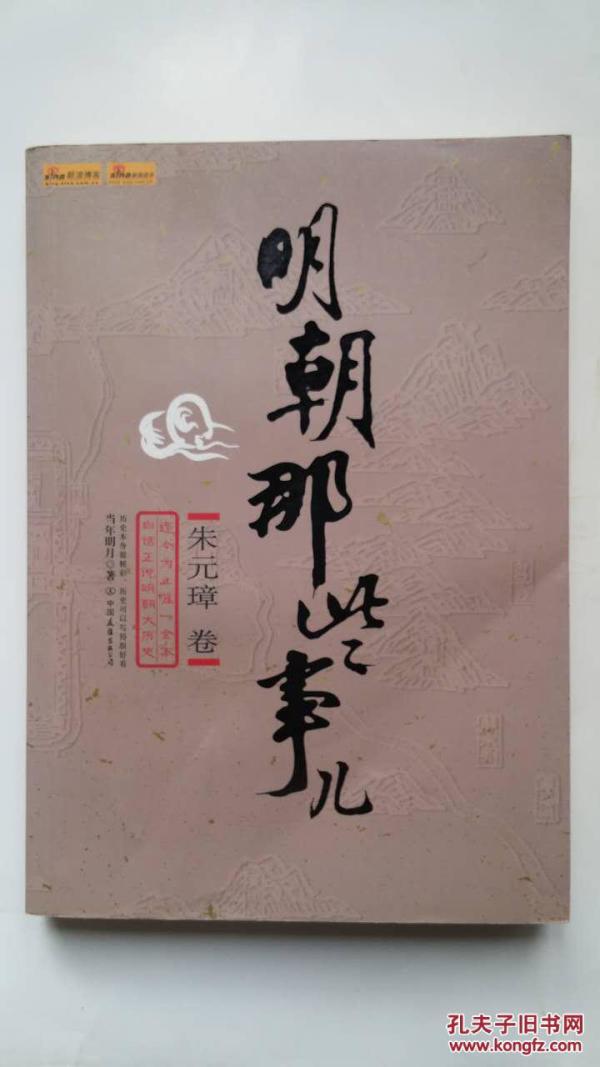 新浪博客
明朝那些事儿
朱元璋 卷
迄今为止唯一全本
白话正说明朝大历史
历史本身很精彩 历史可以写得很好看
当年明月◎著
中国友谊出版公司
孔夫子旧书网
www.kongfz.com